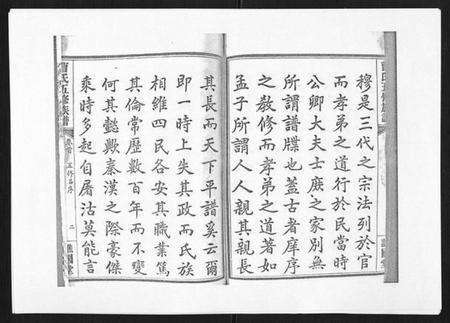 穆是三代之宗法列於官
而孝弟之道行於民當時
公卿大夫士庶之家別無
所謂譜牒也蓋古者庠序
之教修而孝弟之道著如
孟子所謂人人親其親長
其長而天下平譜奚云爾
即一時上失其政而氏族
相維四民各安其職業篤
其倫常歷數百年而不變
何其懿歟秦漢之際豪傑
乘時多起自屠沽莫能言
氏五修族譜
二